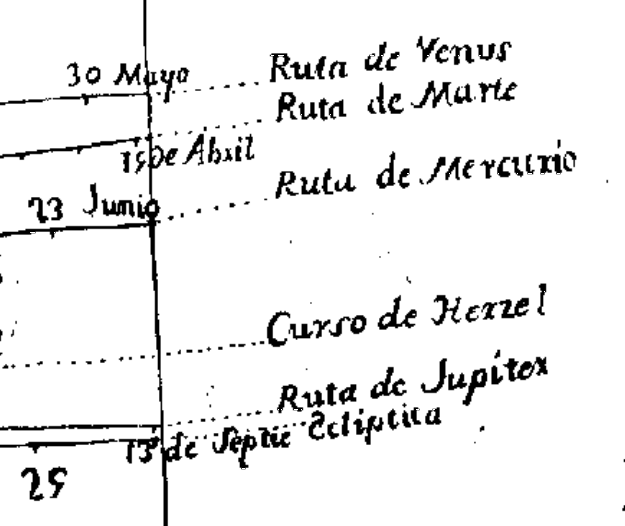 30 Mayo
Ruta de Venus
Ruta de Marte
15 de Abril
Ruta de Mercurio
23 Junio
Curso de Herzel
Ruta de Jupiter
Ecliptica
13 de Septie
25